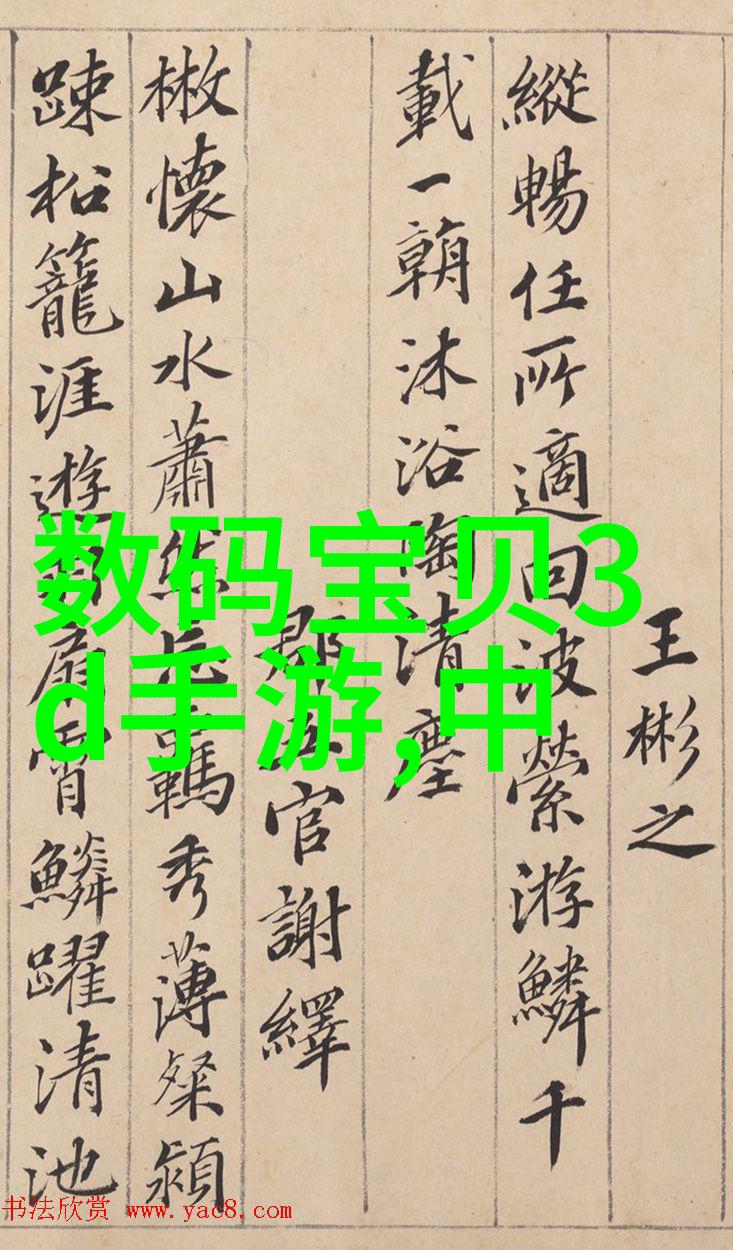 王彬之
縱暢任所適回波縈游鱗千
載一朝沐浴陶清塵
郡五官謝繹
散懷山水蕭然忘羈秀薄粲潁
踈松籠涯遊羽扇霄鱗躍清池
数码宝贝3
d手游,中
书法欣赏 www.yac8.com